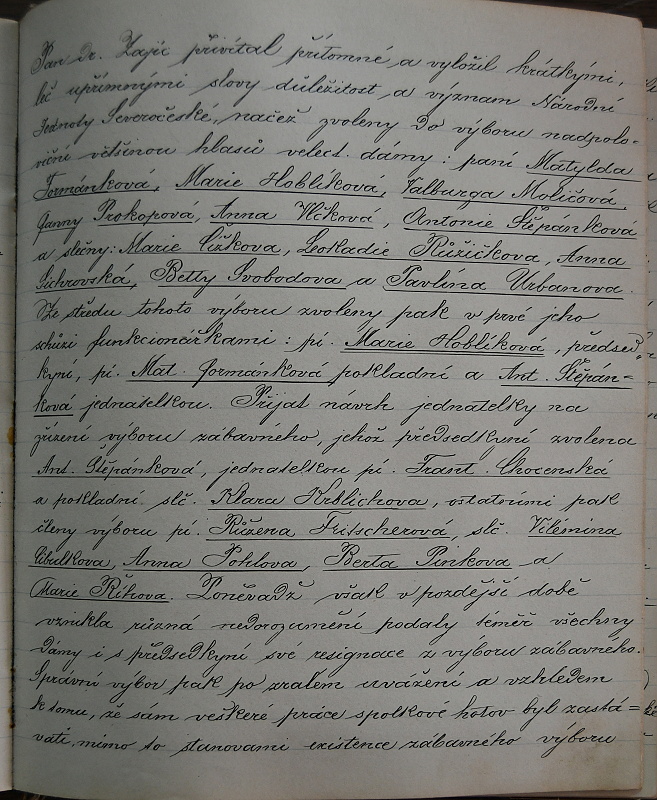 Pan dr. Zajíc přivítal přítomné a vyložil krátkými,
leč upřímnými slovy důležitost a význam Národní
Jednoty Severočeské, načež zvoleny do výboru nadpolo-
viční většinou hlasů velect. dámy: paní Matylda
Formánková, Marie Hoblíková, Valburga Moličová,
Fanny Prokopová, Anna Vlčková, Antonie Štěpánková
a slečny: Marie Čížkova, Leokadie Růžičkova, Anna
Sichrovská, Betty Svobodova a Pavlína Urbanova.
Ze středu tohoto výboru zvoleny pak v prvé jeho
schůzi funkcionářkami: pí. Marie Hoblíková, předsed-
kyní, pí. Mat. Formánková pokladní a Ant. Štěpán-
ková jednatelkou. Přijat návrh jednatelky na
zřízení výboru zábavného, jehož předsedkyní zvolena
Ant. Štěpánková, jednatelkou pí. Frant. Chocenská
a pokladní slč. Klara Krblichova, ostatními pak
členy výboru pí. Růžena Fritscherová, slč. Vilémina
Cibulkova, Anna Pohlova, Berta Pinkova a
Marie Říhova. Poněvadž však v pozdější době
vznikla různá nedorozumění podaly téměř všechny
dámy i s předsedkyní své resignace z výboru zábavného.
Správní výbor pak po zralém uvážení a vzhledem
k tomu, že sám veškeré práce spolkové hotov byl zastá-
vati, mimo to stanovami existence zábavného výboru